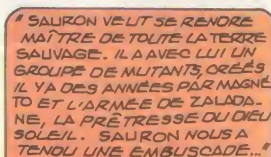 "SAURON VEUT SE RENDRE
MAÎTRE DE TOUTE LA TERRE
SAUVAGE. IL A AVEC LUI UN
GROUPE DE MUTANTS, CRÉÉS
IL Y A DES ANNÉES PAR MAGNÉ
TO ET L'ARMÉE DE ZALADA-
NE, LA PRÊTRESSE DU DIEU
SOLEIL. SAURON NOUS A
TENDU UNE EMBUSCADE..."